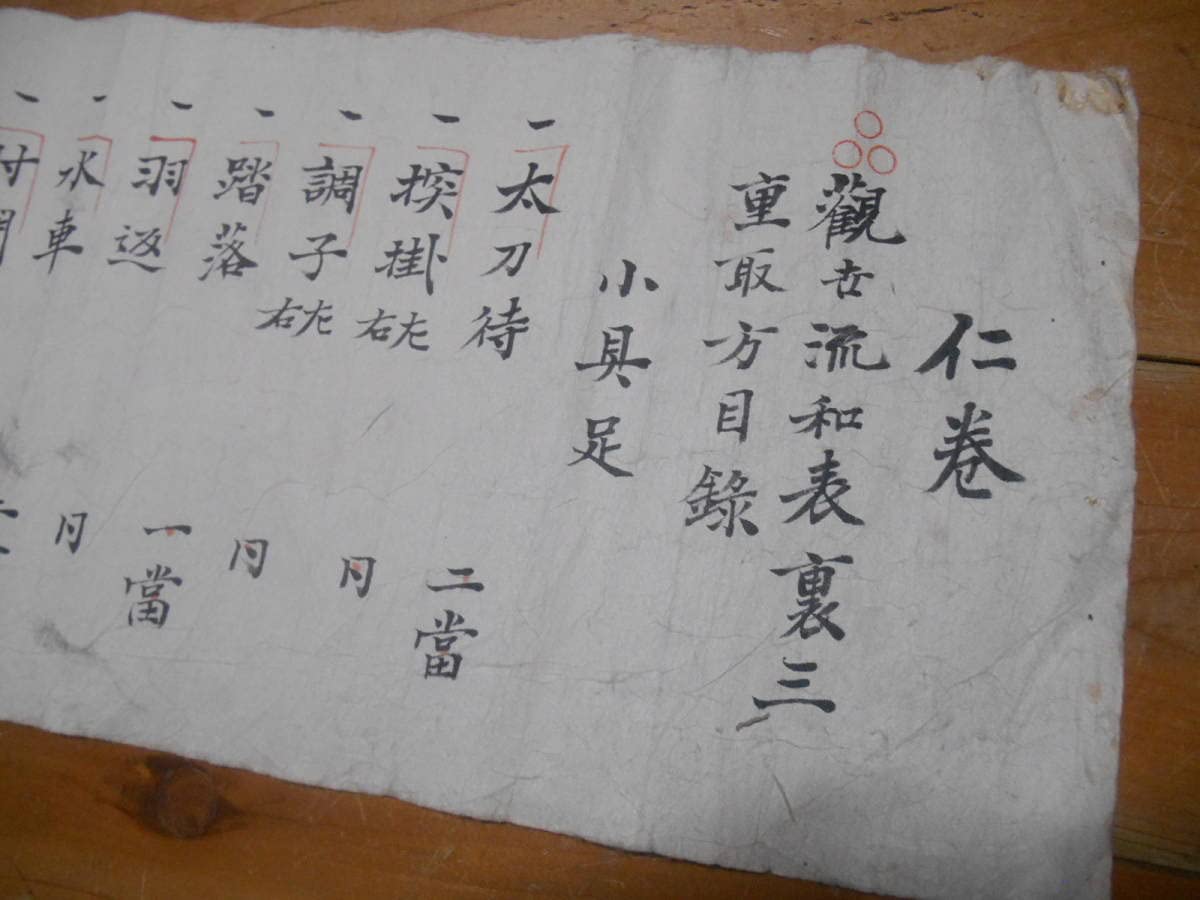 仁巻
觀世流和表裏三
重取方目錄
小具足
一太刀待
一捘掛左右 二當
一調子左右 同
一踏落 同
一羽返 一當
一水車 同
一付